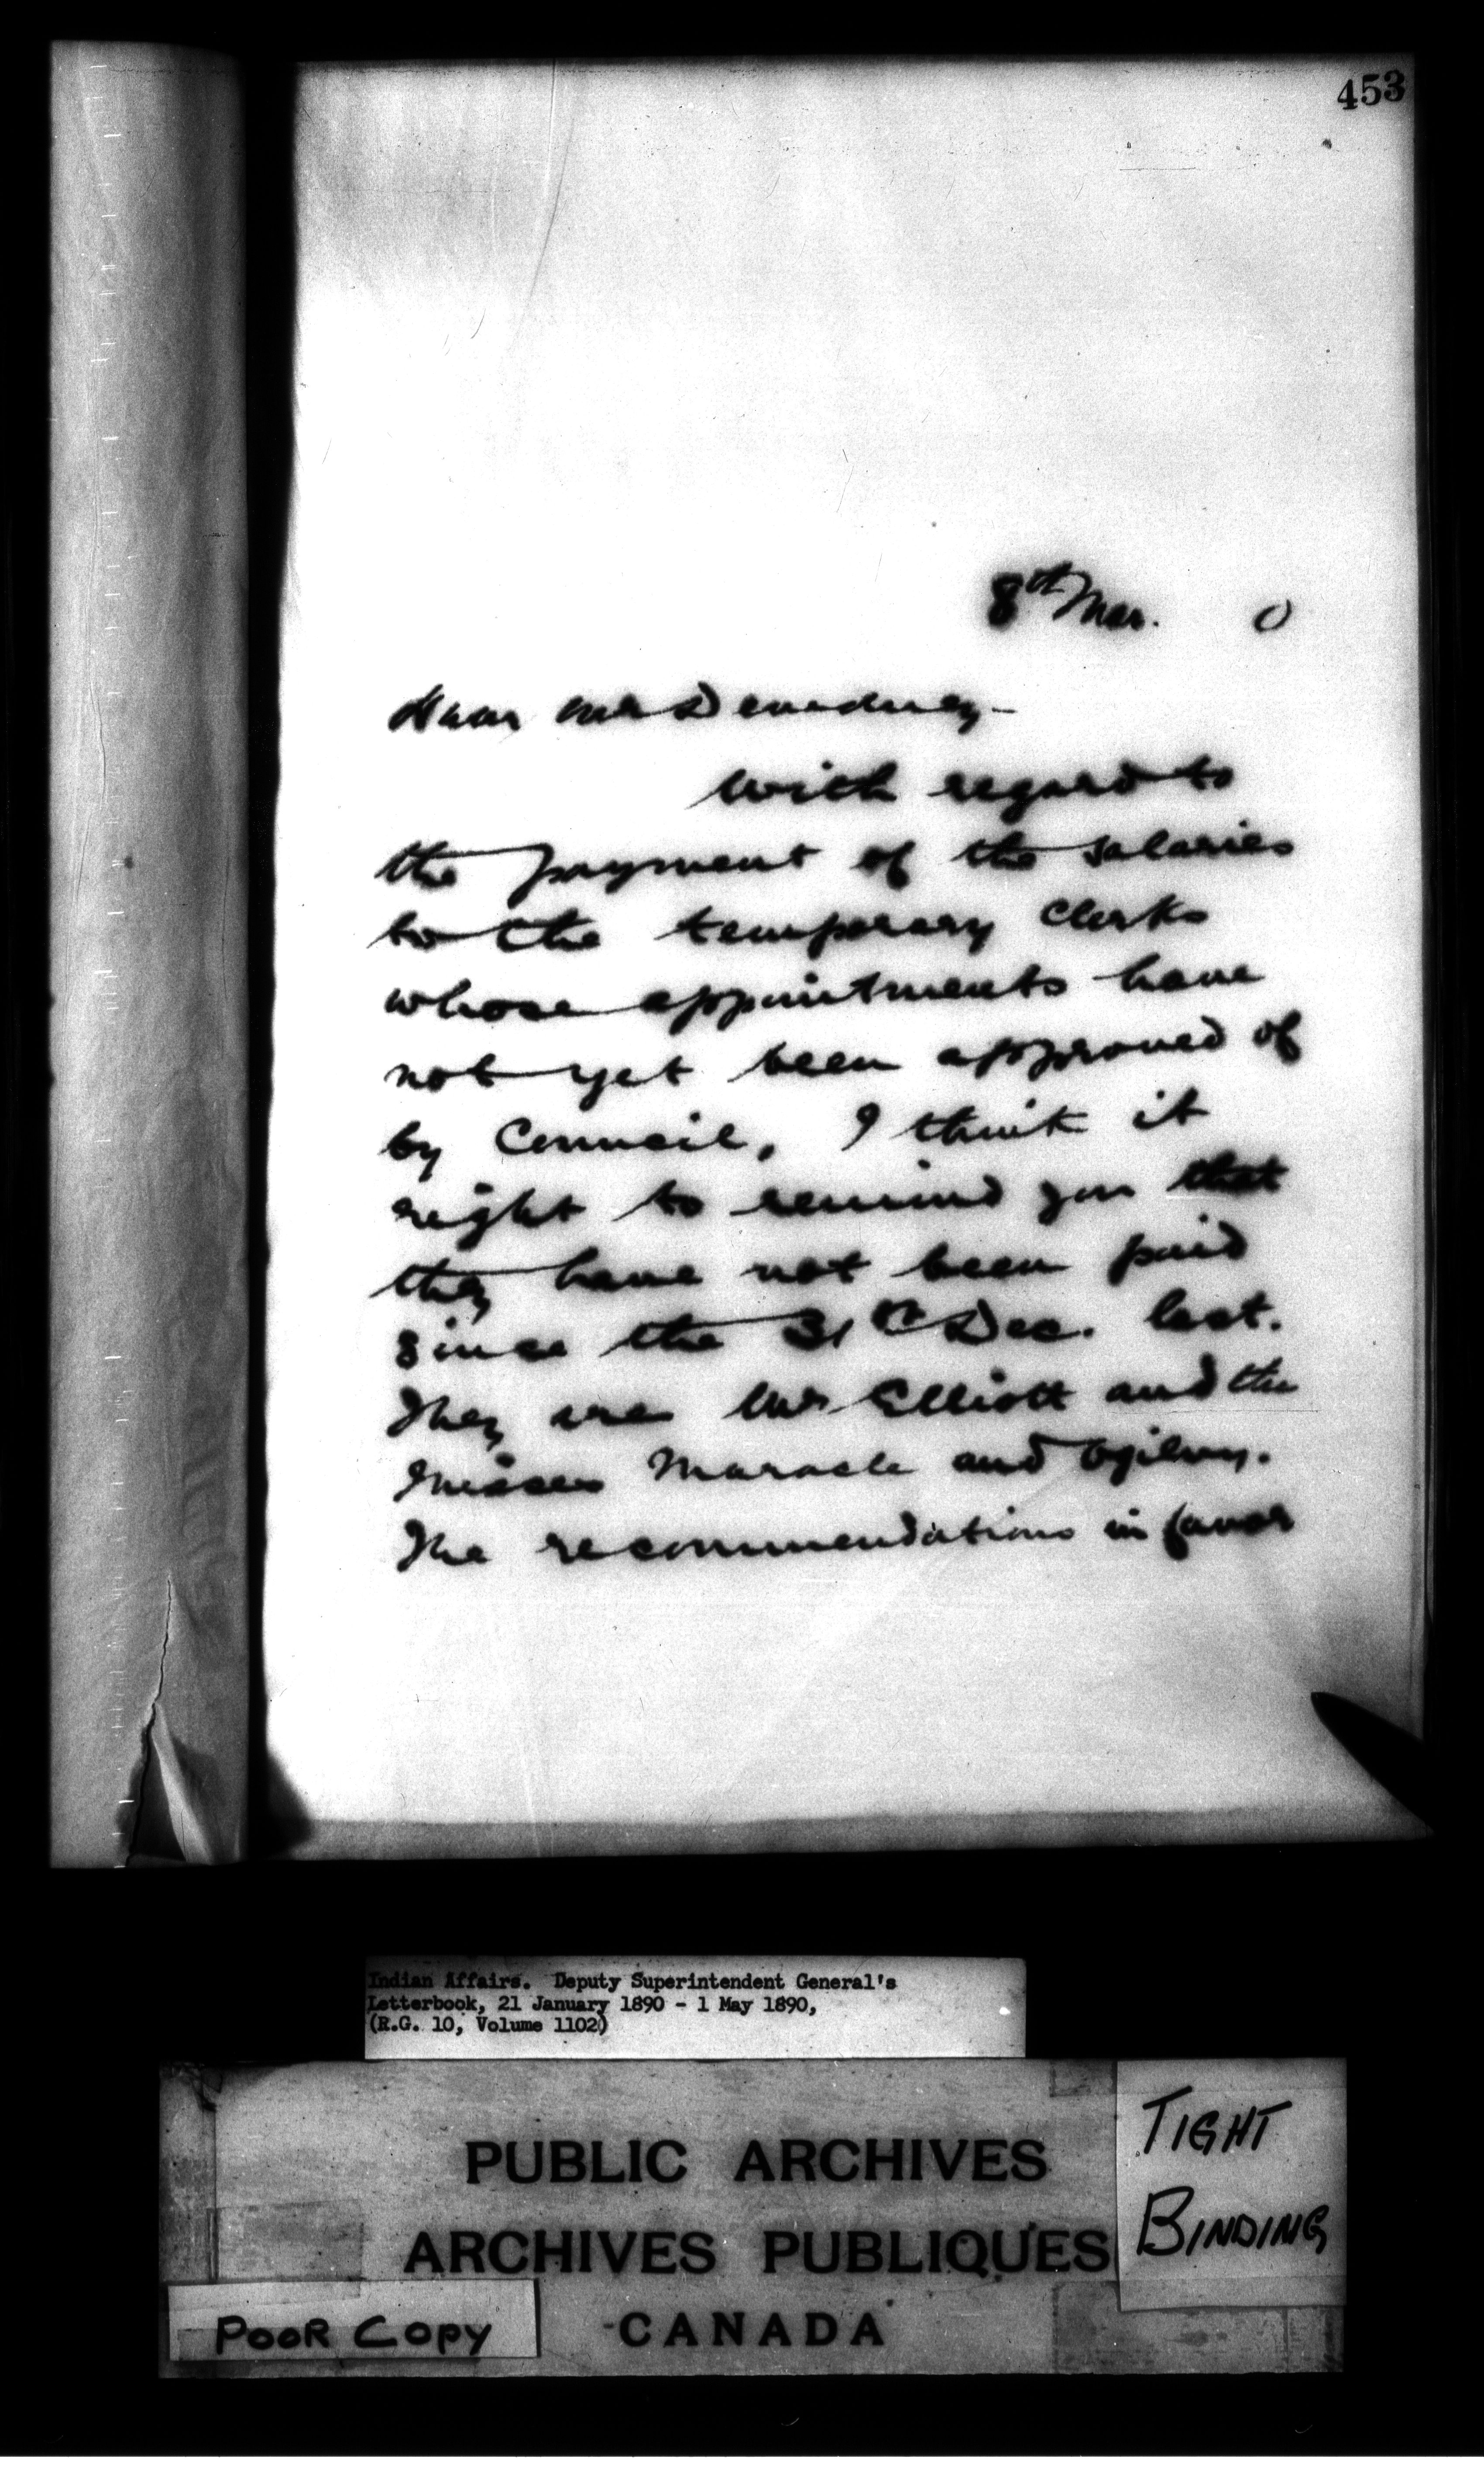 453
8th Mar. 0
Dear Mr Dewdney -
With regard to
the payment of the salaries
to the temporary Clerks
whose appointments have
not yet been approved of
by Council, I think it
right to remind you that
they have not been paid
since the 31st Dec. last.
They are Mr Elliott and the
Misses Maracle and Ogilvy.
The recommendations in favor
Indian Affairs. Deputy Superintendent General's
Letterbook, 21 January 1890 - 1 May 1890,
(R.G. 10, Volume 1102)
PUBLIC ARCHIVES
ARCHIVES PUBLIQUES
CANADA
TIGHT
BINDING
POOR COPY